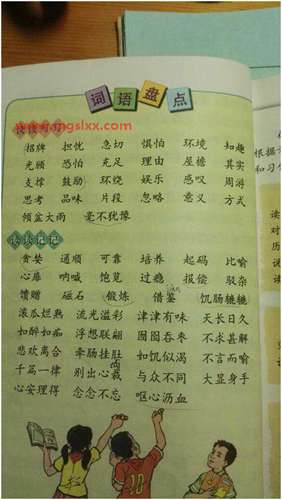 词语盘点
读读写写
招牌 担忧 急切 惧怕 环境 知趣
光顾 恐怕 充足 理由 屋檐 其实
支撑 鼓励 环绕 娱乐 感叹 周游
思考 品味 片段 忽略 意义 方式
倾盆大雨 毫不犹豫
读读记记
贪婪 通顺 可靠 培养 起码 比喻
心扉 呐喊 饱览 过瘾 报偿 驳杂
馈赠 磁石 锻炼 借鉴 饥肠辘辘
滚瓜烂熟 流光溢彩 津津有味 天长日久
如醉如痴 浮想联翩 囫囵吞枣 不求甚解
悲欢离合 牵肠挂肚 如饥似渴 不言而喻
千篇一律 别出心裁 与众不同 大显身手
心安理得 念念不忘 呕心沥血
根据
和习
读
对
历
说